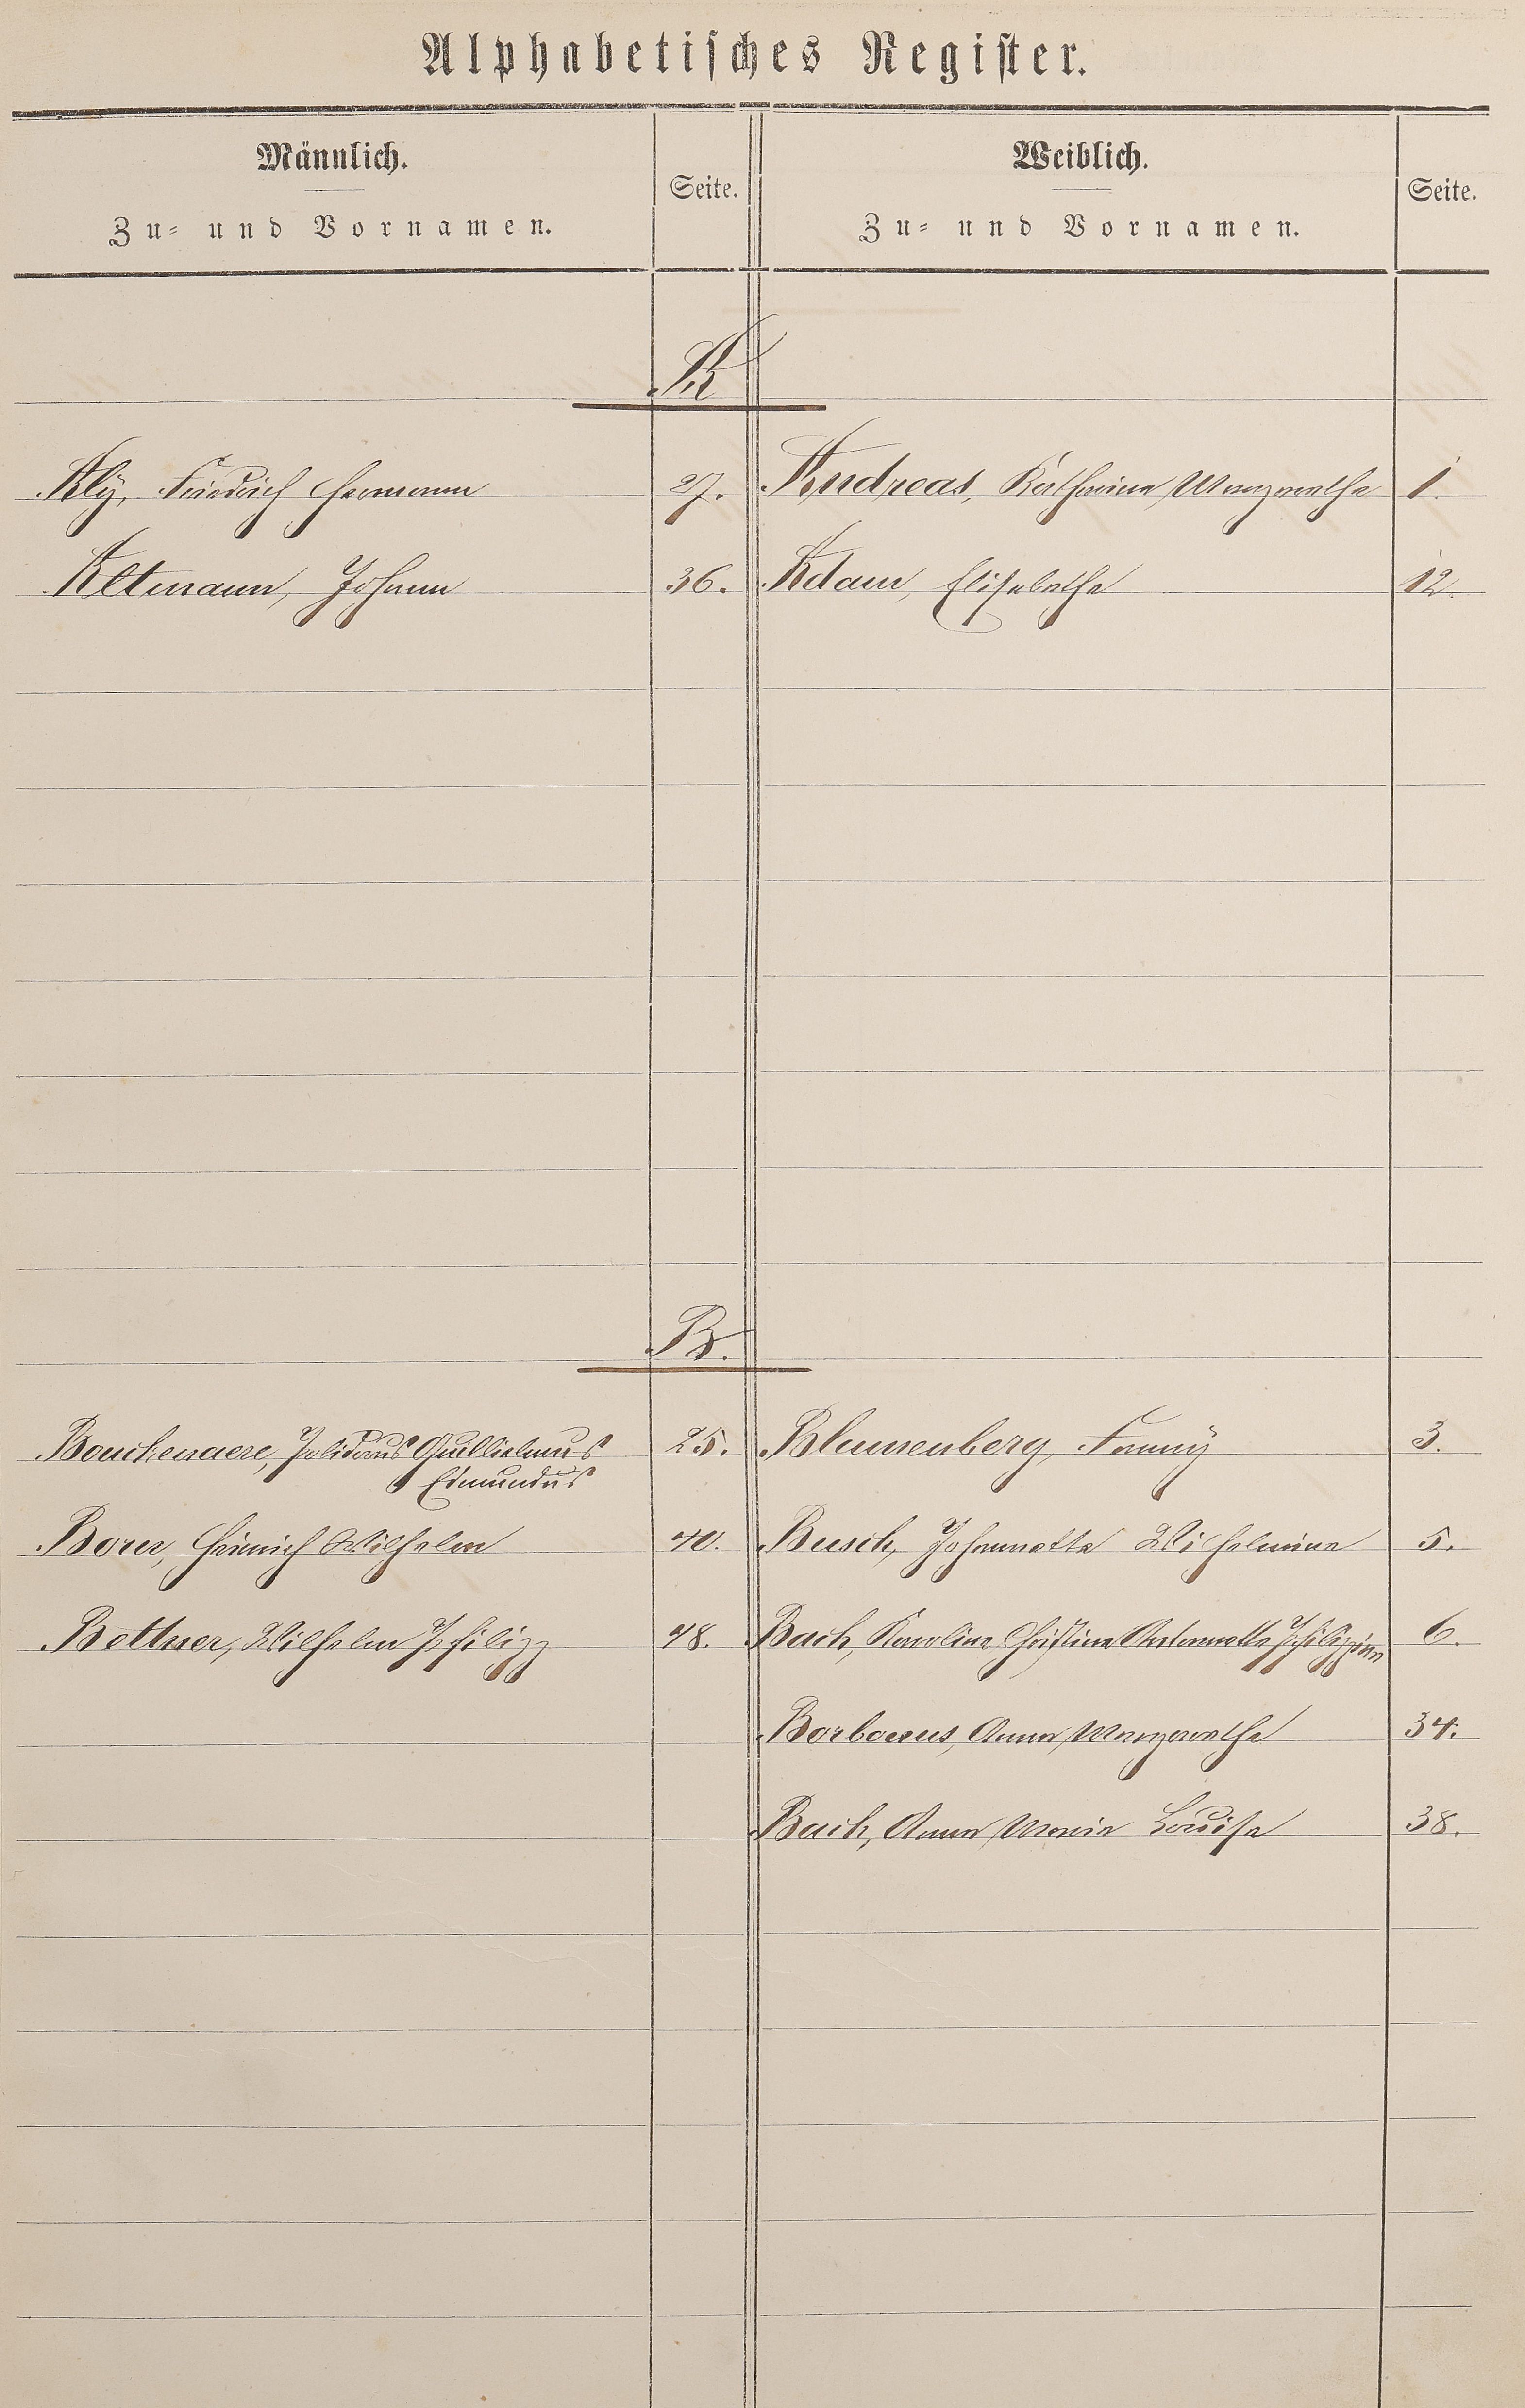 Alphabetisches Register.
Männlich.
Zu- und Vornamen.
Seite.
Weiblich.
Zu- und Vornamen.
Seite.
A
Alÿ, Friedrich Hermann 27. Andreas, Katharina Margarethe 1.
Altmann, Johann 36. Adam, Elisabethe 12.
B.
Bouckenaere, Polidorus Guillielmus 25. Blumenberg, Fannÿ 3.
Edmundus
Borer, Heinrich Wilhelm 40. Busch, Johannette Wilhelmine 5.
Bettner, Wilhelm Philipp 48. Bach, Karoline Christine Antonnette Philippine 6.
Borbonus, Anna Margarethe 34.
Bach, Anna Maria Louise 38.